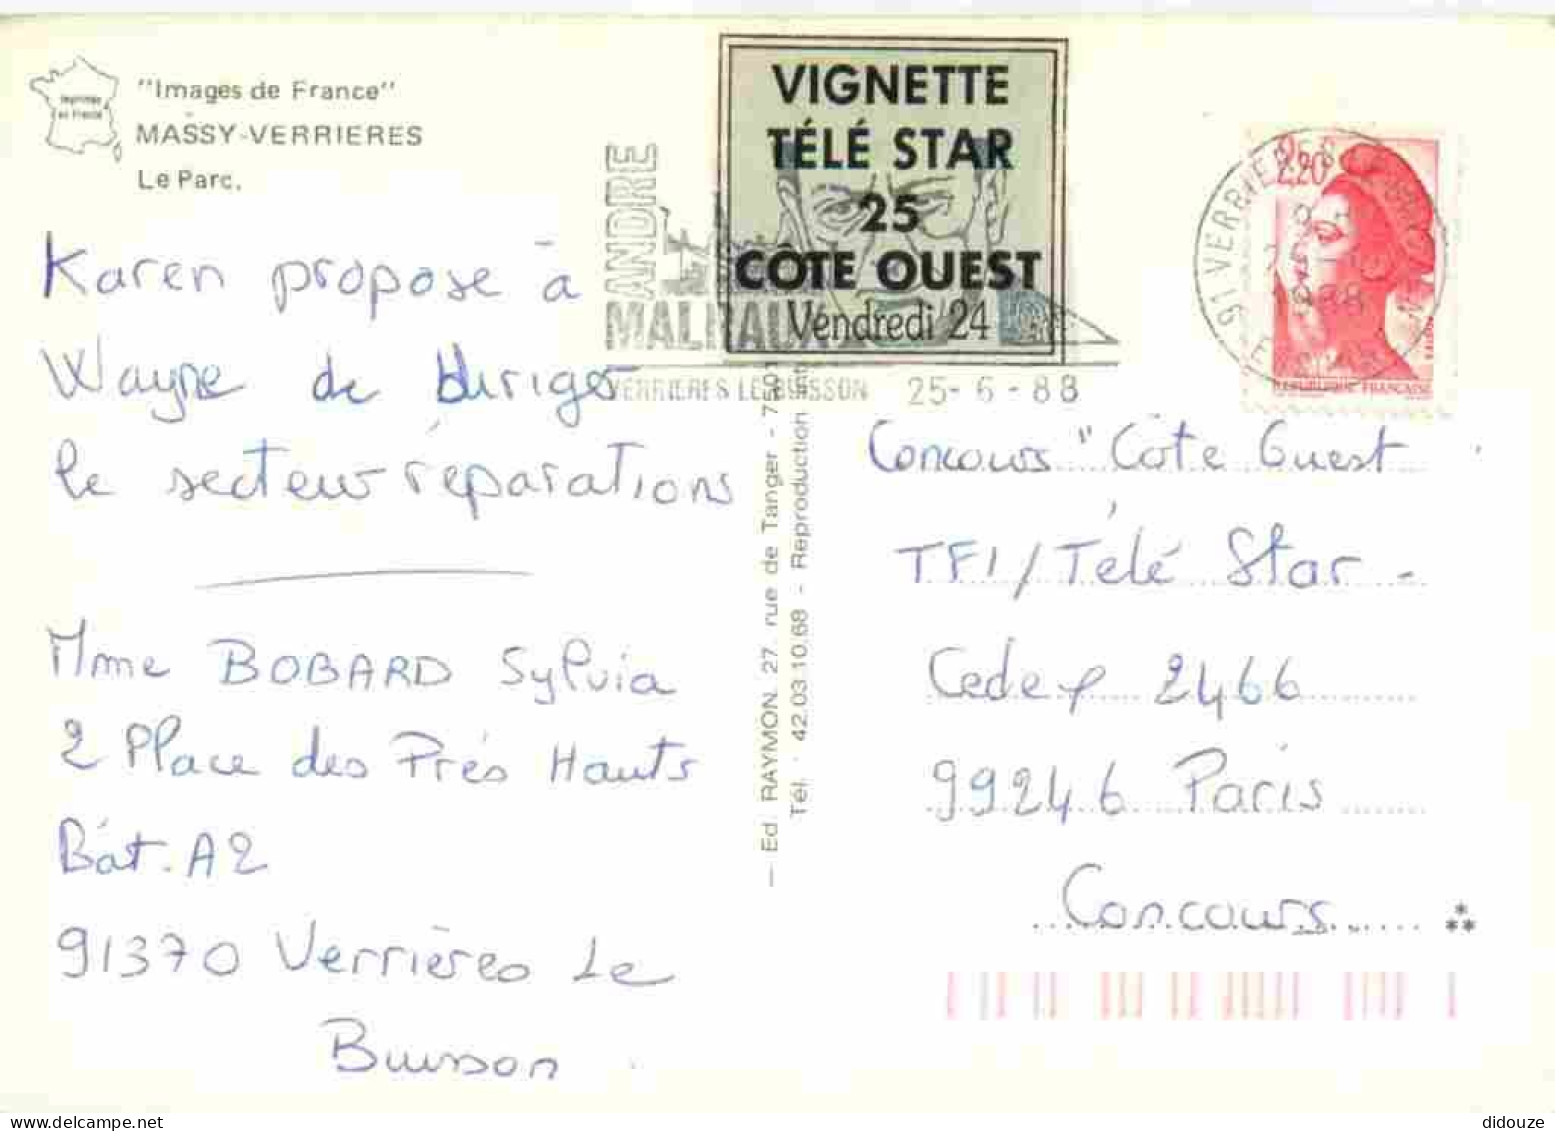 "Images de France"
MASSY-VERRIERES
Le Parc.
Imprimée
en France
Karen propose à
Wayne de diriger
le secteur réparations
Mme BOBARD Sylvia
2 Place des Prés Hauts
Bât. A2
91370 Verrières Le
Buisson
ANDRE
MALRAUX
VERRIERES LE BUISSON 25-6-88
VIGNETTE
TÉLÉ STAR
25
CÔTE OUEST
Vendredi 24
2,20
REPUBLIQUE FRANÇAISE
91 VERRIERES
1988
— Ed. RAYMON. 27, rue de Tanger - 7501
Tél. : 42.03.10.68 - Reproduction int
Concours "Côte Ouest
TF1/Télé Star -
Cedex 2466
99246 Paris
Concours
didouze